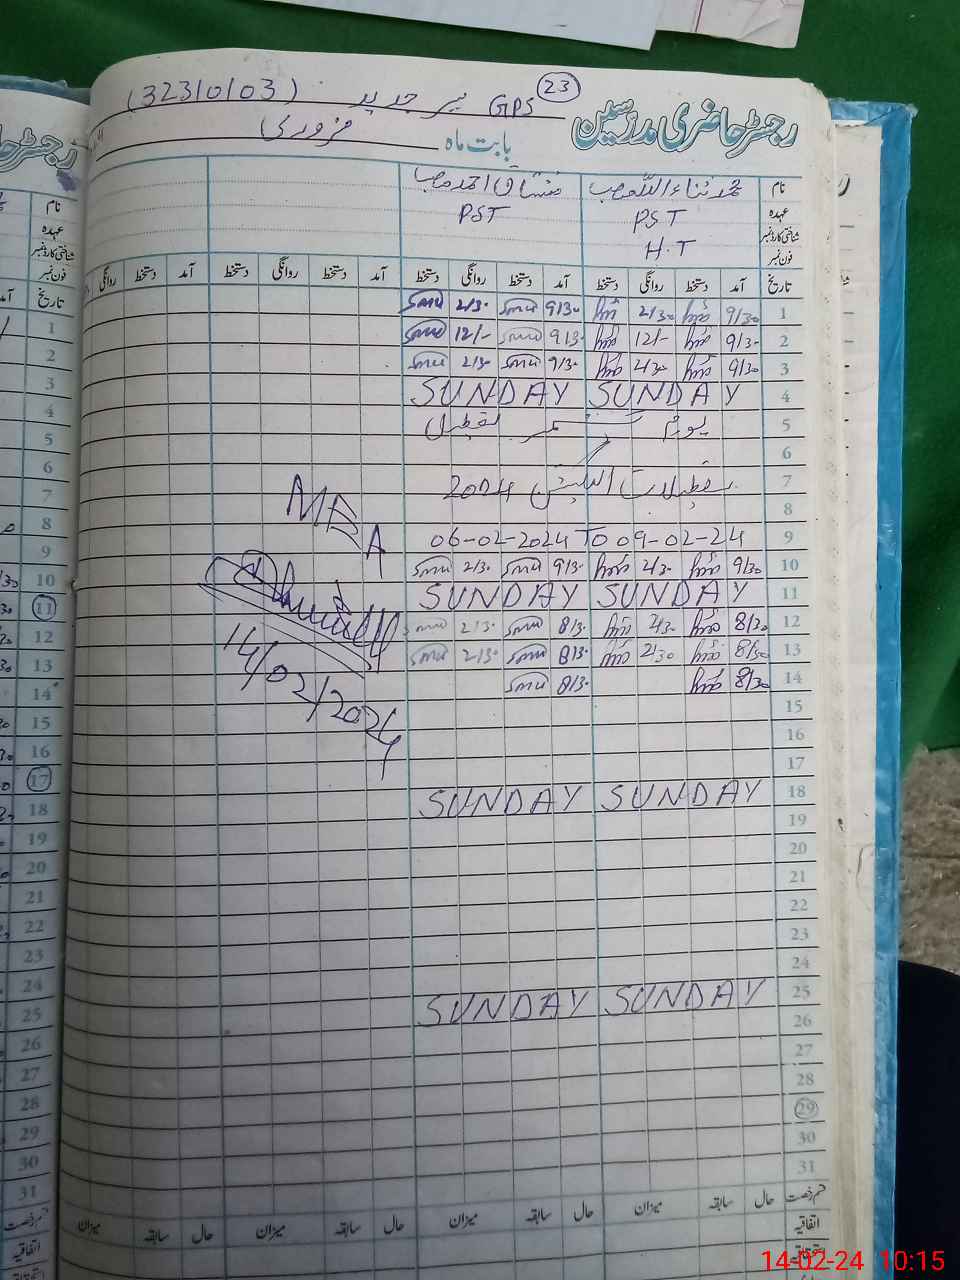 رجسٹر حاضری مدرسین GPS 23 بیر جدید (32310103)
بابت ماہ فروری
نام محمد ثناء اللہ صاحب مشتاق احمد صاحب
عہدہ PST PST
شناختی کارڈ نمبر H.T
فون نمبر
تاریخ آمد دستخط روانگی دستخط آمد دستخط روانگی دستخط آمد دستخط روانگی دستخط آمد دستخط روانگی
1 9/30 2/30 9/30 2/30
2 9/30 12/- 9/30 12/-
3 9/30 2/30 9/30 2/30
4 SUNDAY SUNDAY
5 یوم کشمیر تعطیل
6
7 تعطیلات الیکشن 2024
8
9 06-02-2024 TO 09-02-24
10 9/30 2/30 9/30 2/30
11 SUNDAY SUNDAY
12 8/30 2/30 8/30 2/30
13 8/30 2/30 8/30 2/30
14 8/30 8/30
MEA
14/02/2024
15
16
17
18 SUNDAY SUNDAY
19
20
21
22
23
24
25 SUNDAY SUNDAY
26
27
28
29
30
31
قسم رخصت حال سابقہ میزان حال سابقہ میزان حال سابقہ میزان حال سابقہ میزان
اتفاقیہ
14-02-24 10:15